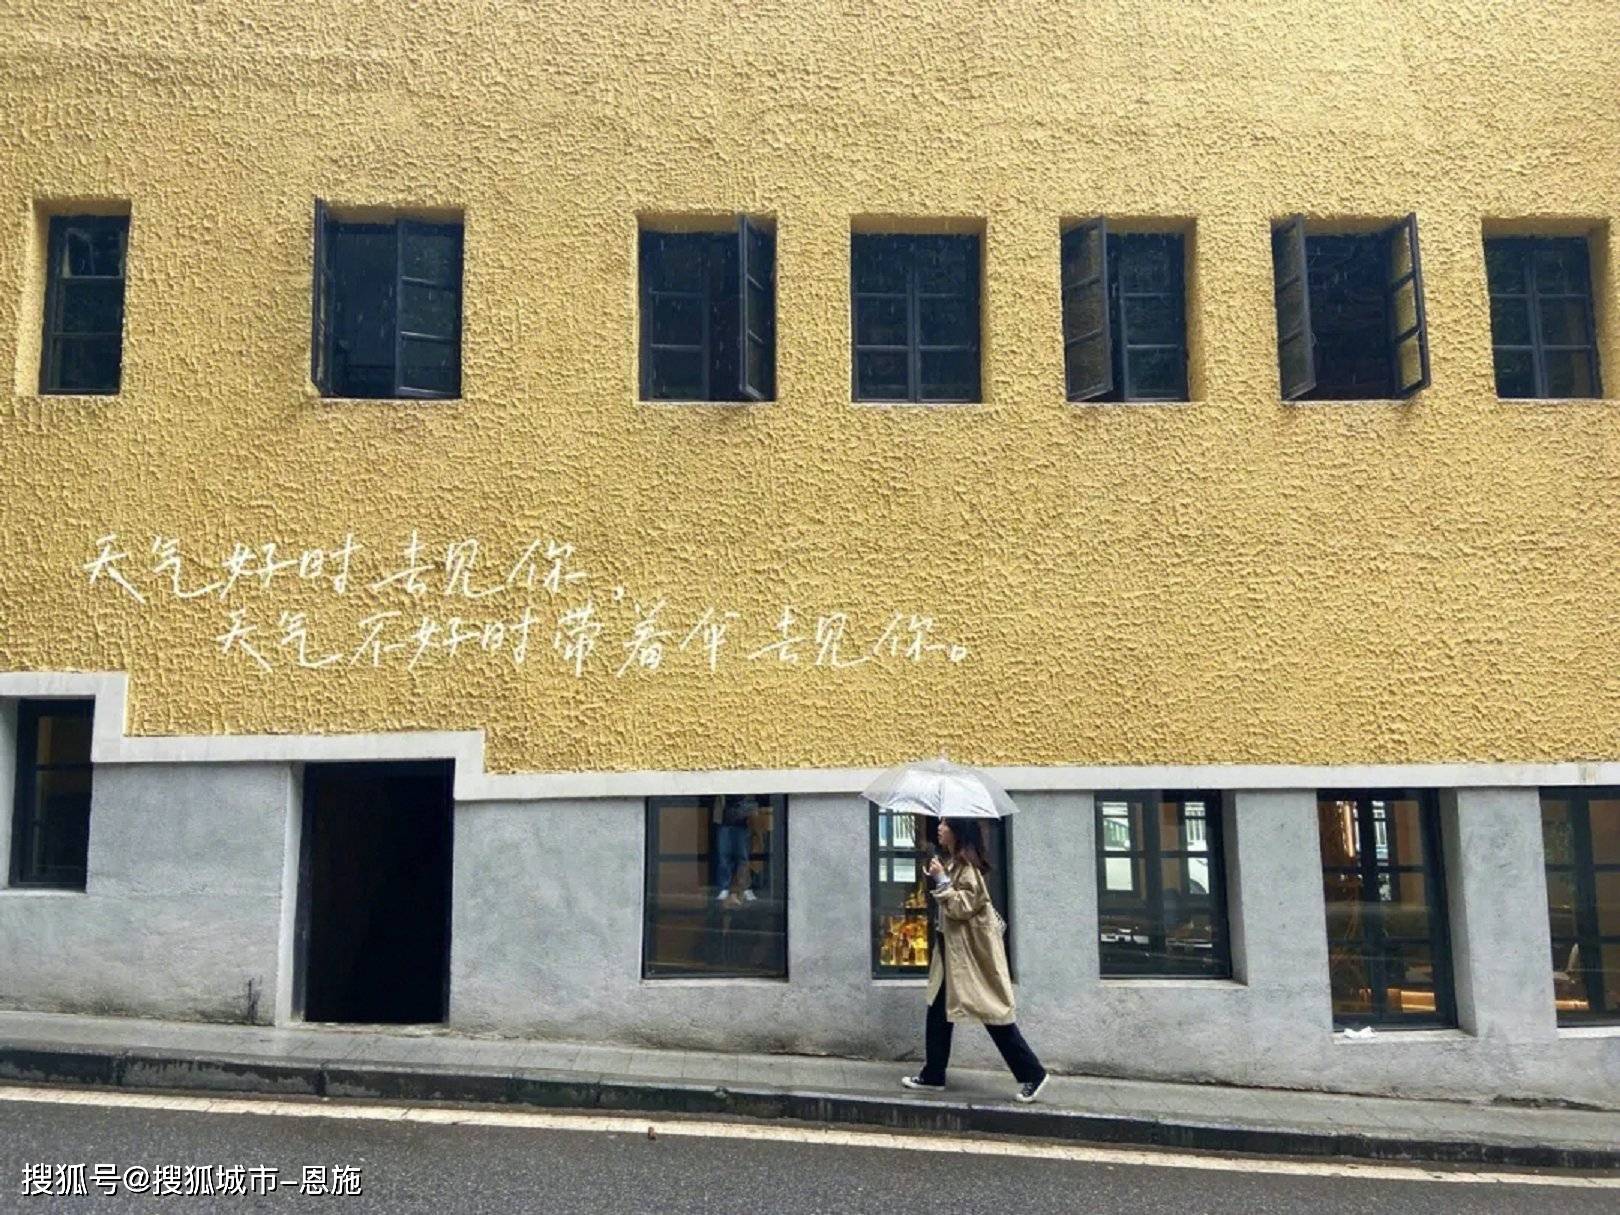 天气好时去见你，
天气不好时带着伞去见你。
搜狐号@搜狐城市-恩施